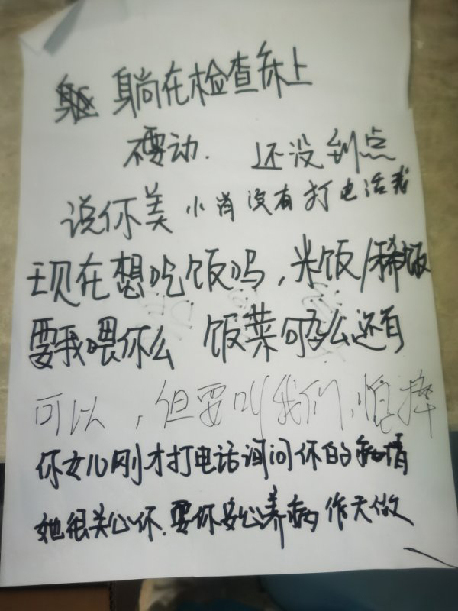 躺在检查床上
不要动. 还没到点
说你美 小肖没有打电话我
现在想吃饭吗,米饭/稀饭
要我喂你么 饭菜够么还有
可以,但要叫我们,怕摔
你女儿刚才打电话询问你的病情
她很关心你.要你安心养病 作天做